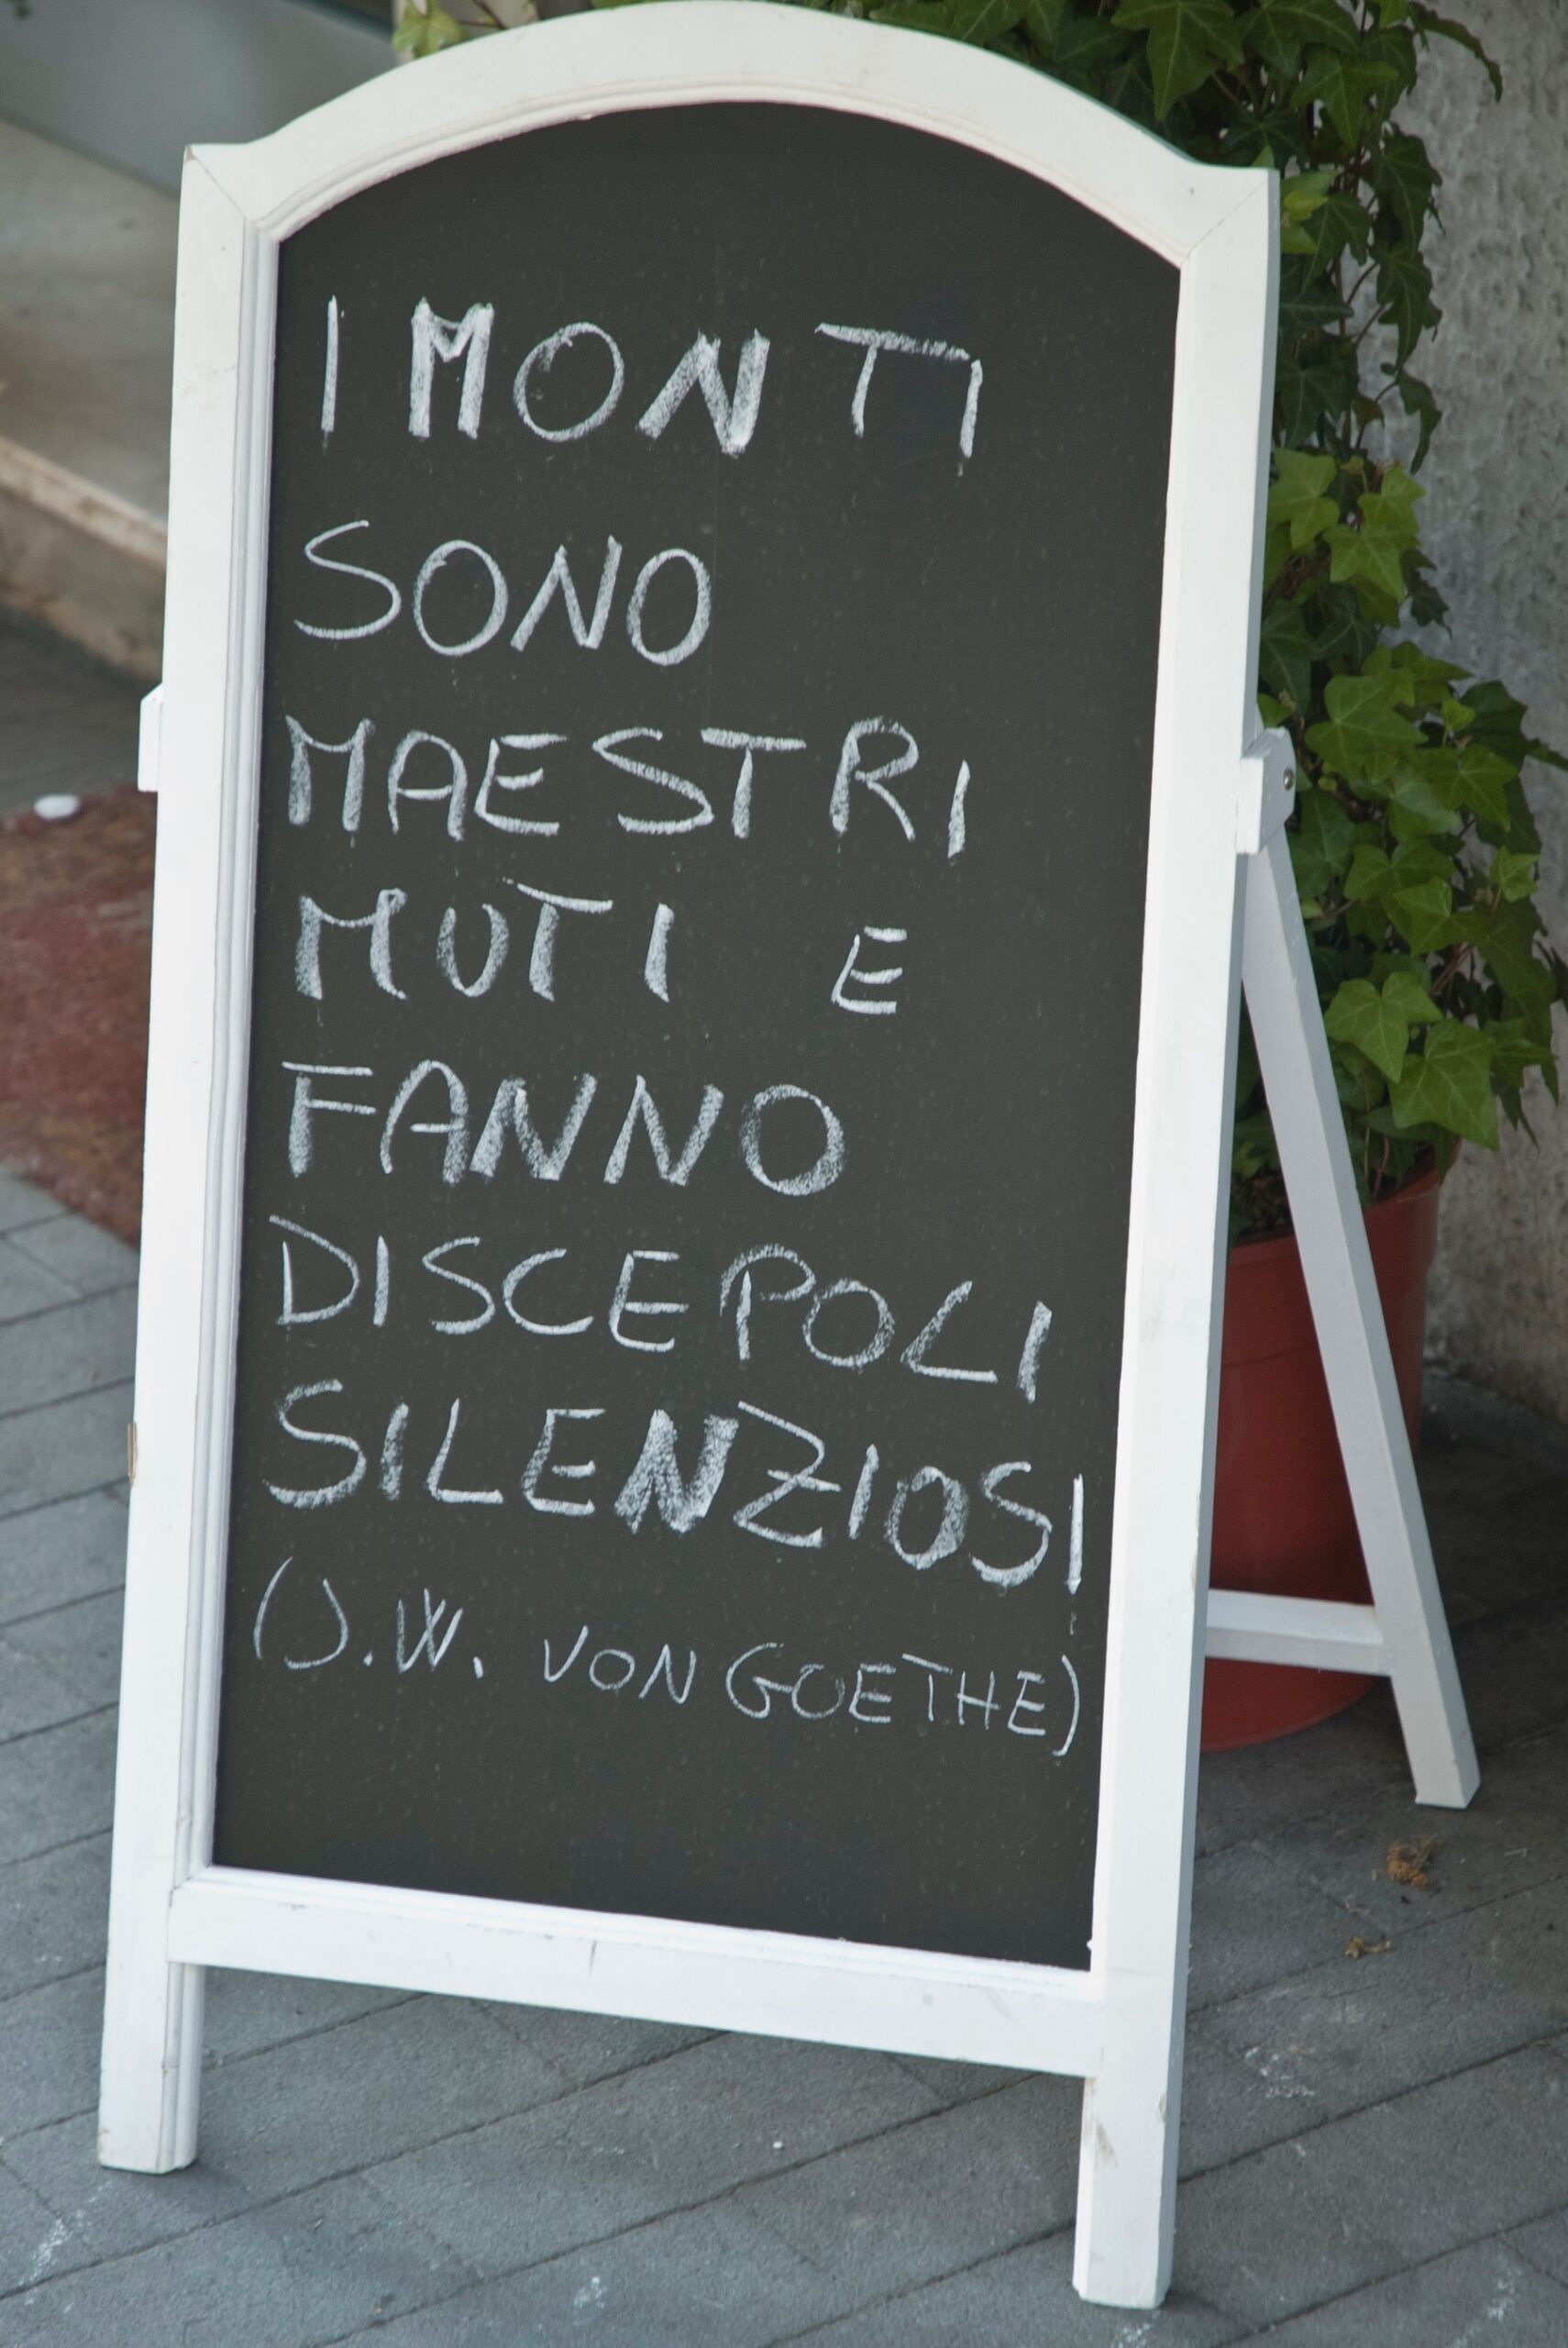 I MONTI
SONO
MAESTRI
MUTI E
FANNO
DISCEPOLI
SILENZIOSI
(J.W. VON GOETHE)